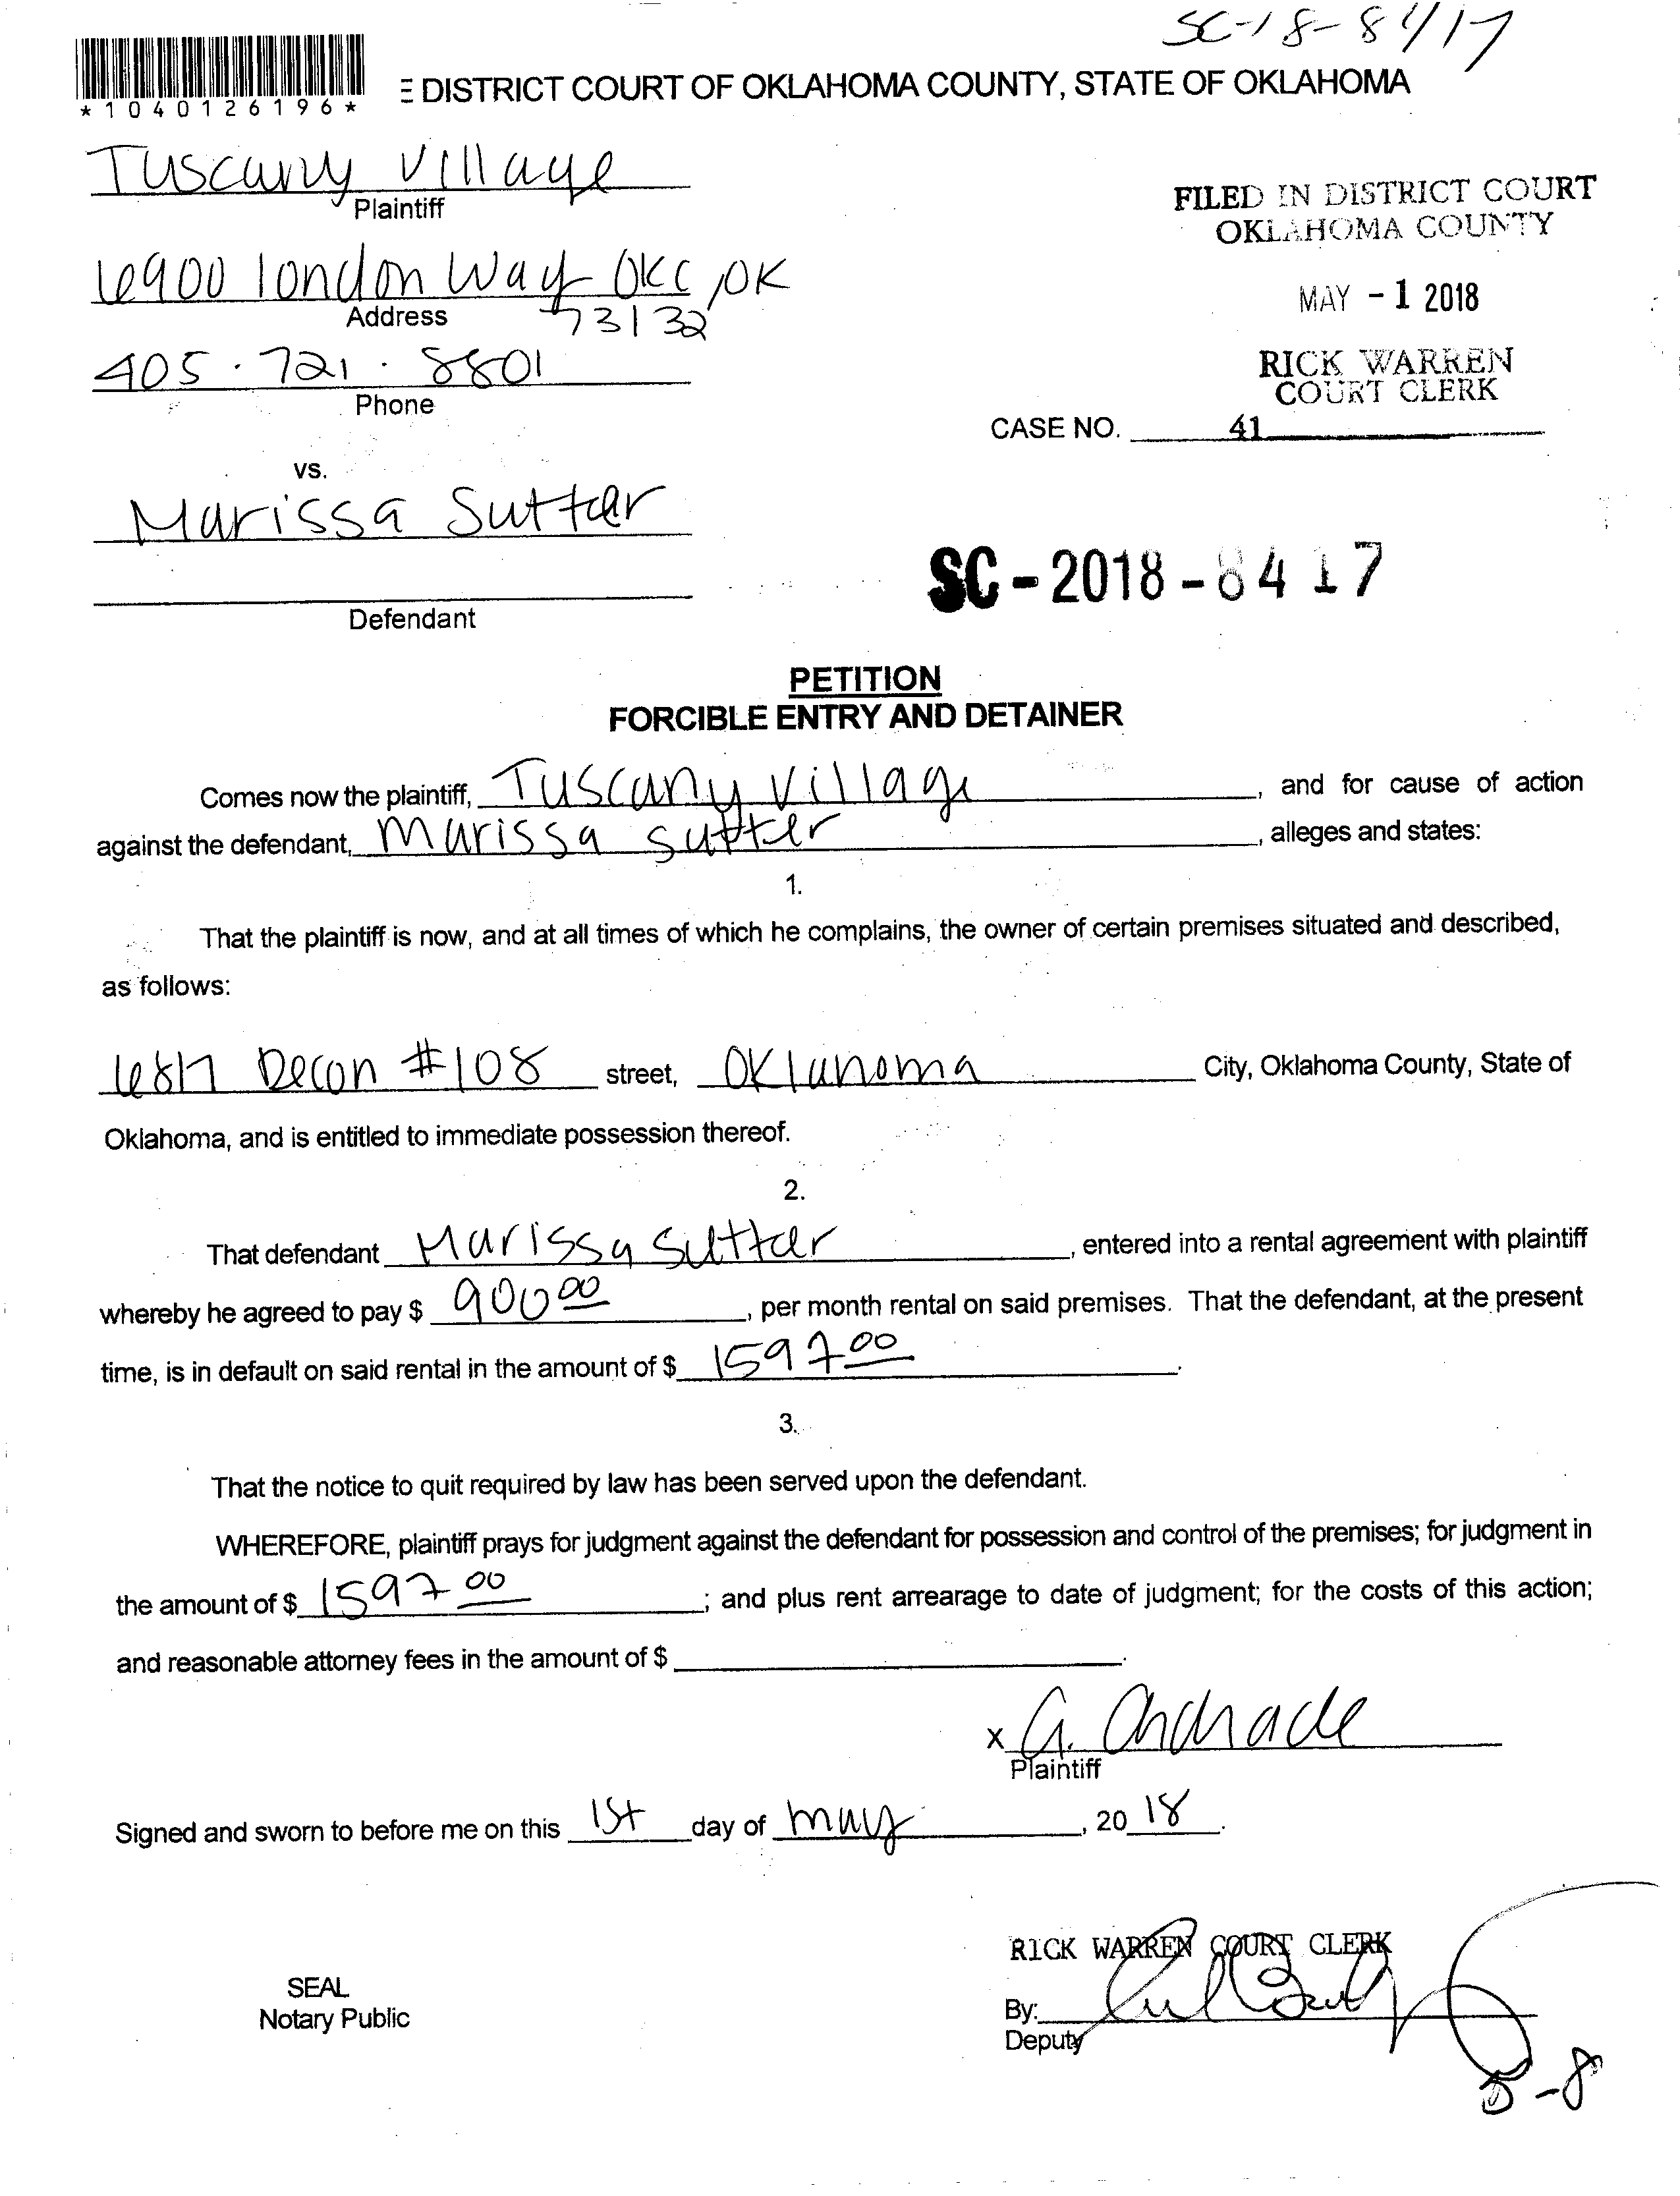 SC-18-8417
*1040126196*
E DISTRICT COURT OF OKLAHOMA COUNTY, STATE OF OKLAHOMA
Tuscany Village
Plaintiff
FILED IN DISTRICT COURT
OKLAHOMA COUNTY
6900 london Way OKC, OK
Address 73132
MAY - 1 2018
405.721.8801
Phone
RICK WARREN
COURT CLERK
CASE NO. 41
vs.
Marissa Sutter
Defendant
SC - 2018 - 8417
PETITION
FORCIBLE ENTRY AND DETAINER
Comes now the plaintiff, Tuscany Village, and for cause of action
against the defendant, Marissa Sutter, alleges and states:
1.
That the plaintiff is now, and at all times of which he complains, the owner of certain premises situated and described,
as follows:
6817 #108 street, Oklahoma City, Oklahoma County, State of
Oklahoma, and is entitled to immediate possession thereof.
2.
That defendant Marissa Sutter, entered into a rental agreement with plaintiff
whereby he agreed to pay $ 900 00, per month rental on said premises. That the defendant, at the present
time, is in default on said rental in the amount of $ 1597 00.
3.
That the notice to quit required by law has been served upon the defendant.
WHEREFORE, plaintiff prays for judgment against the defendant for possession and control of the premises; for judgment in
the amount of $ 1597 00; and plus rent arrearage to date of judgment; for the costs of this action;
and reasonable attorney fees in the amount of $ .
x G. Andrade
Plaintiff
Signed and sworn to before me on this 1st day of may, 20 18.
RICK WARREN COURT CLERK
SEAL
Notary Public
By:
Deputy
5-8